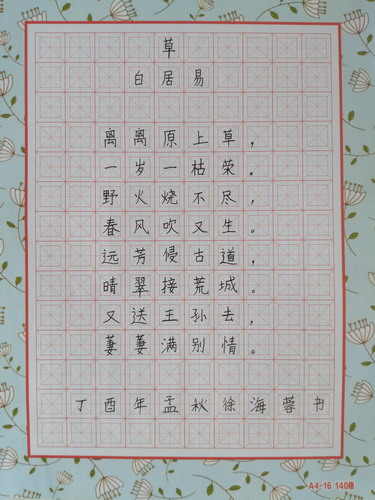 草
白居易
离离原上草，
一岁一枯荣。
野火烧不尽，
春风吹又生。
远芳侵古道，
晴翠接荒城。
又送王孙去，
萋萋满别情。
丁酉年孟秋徐海蓉书
A4-16 140格